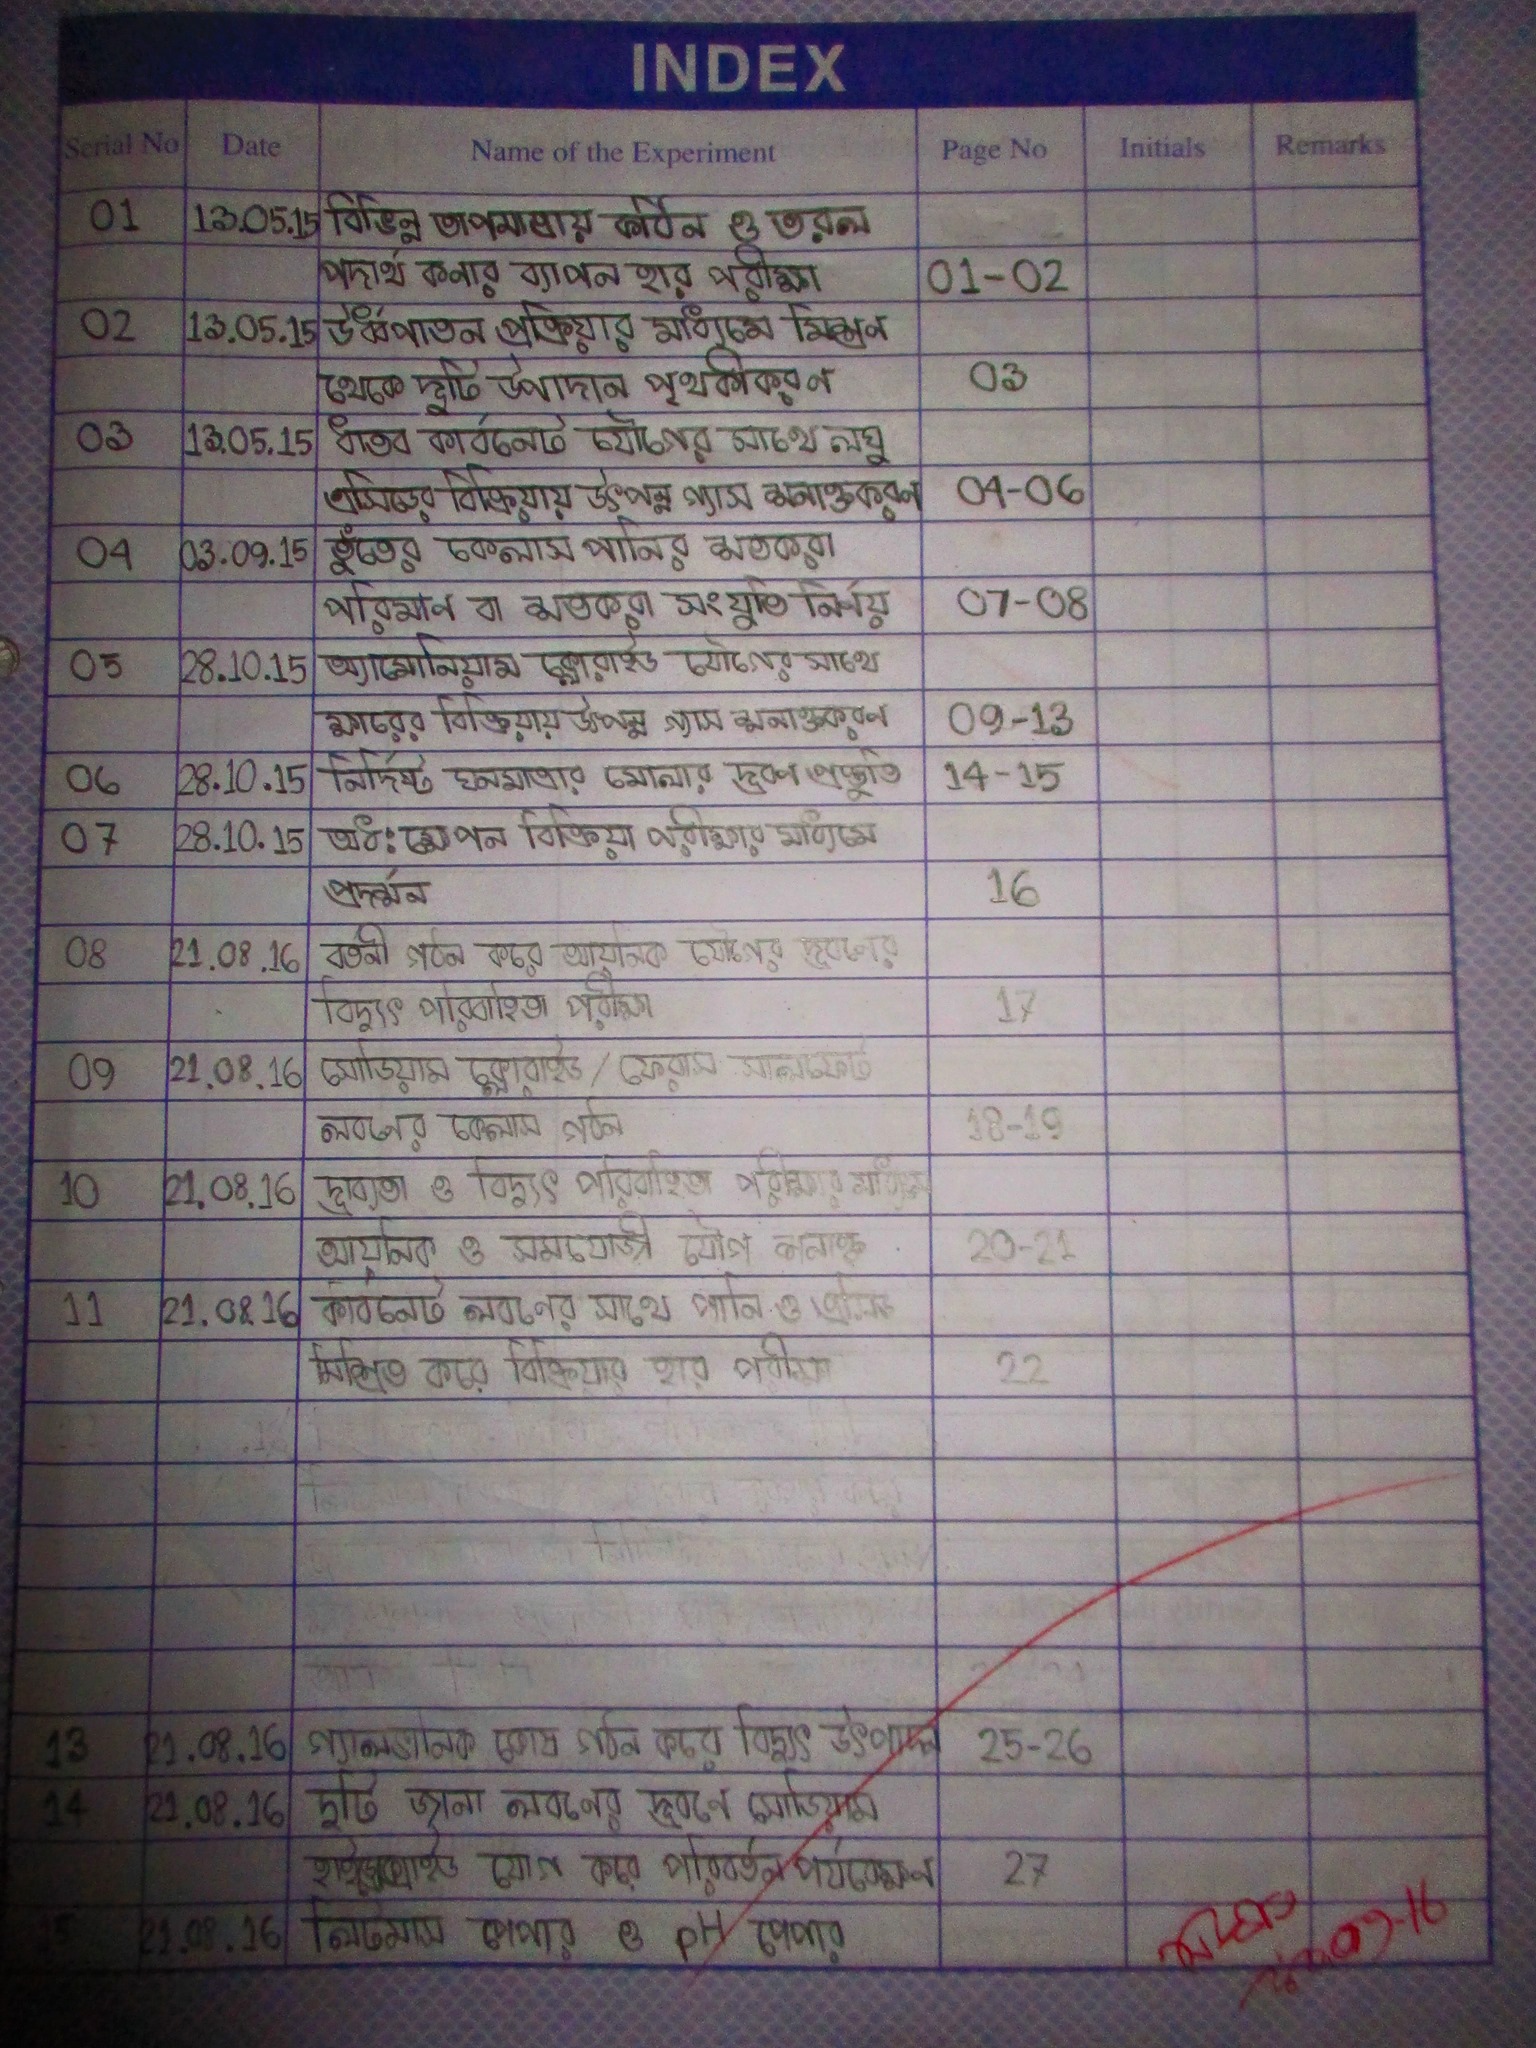 INDEX
Serial No Date Name of the Experiment Page No Initials Remarks
01 13.05.15 বিভিন্ন তাপমাত্রায় কঠিন ও তরল
পদার্থ কনার ব্যাপন হার পরীক্ষা 01-02
02 13.05.15 উর্ধ্বপাতন প্রক্রিয়ার মাধ্যমে মিশ্রন
থেকে দুটি উপাদান পৃথকীকরণ 03
03 13.05.15 ধাতব কার্বনেট যৌগের সাথে লঘু
এসিডের বিক্রিয়ায় উৎপন্ন গ্যাস শনাক্তকরণ 04-06
04 03.09.15 তুঁতের কেলাস পানির শতকরা
পরিমাণ বা শতকরা সংযুতি নির্ণয় 07-08
05 28.10.15 অ্যামোনিয়াম ক্লোরাইড যৌগের সাথে
ক্ষারের বিক্রিয়ায় উৎপন্ন গ্যাস শনাক্তকরণ 09-13
06 28.10.15 নির্দিষ্ট ঘনমাত্রার মোলার দ্রবণ প্রস্তুতি 14-15
07 28.10.15 অধঃক্ষেপন বিক্রিয়া পরীক্ষার মাধ্যমে
প্রদর্শন 16
08 21.08.16 বর্তনী গঠন করে আয়নিক যৌগের দ্রবণের
বিদ্যুৎ পরিবাহিতা পরীক্ষা 17
09 21.08.16 সোডিয়াম ক্লোরাইড / ফেরাস সালফেট
লবণের কেলাস গঠন 18-19
10 21.08.16 দ্রাব্যতা ও বিদ্যুৎ পরিবাহিতা পরীক্ষার মাধ্যমে
আয়নিক ও সমযোজী যৌগ শনাক্ত 20-21
11 21.08.16 কার্বনেট লবণের সাথে পানি ও এসিড
মিশ্রিত করে বিক্রিয়ার হার পরীক্ষা 22
13 21.08.16 গ্যালভানিক কোষ গঠন করে বিদ্যুৎ উৎপাদন 25-26
14 21.08.16 দুটি জানা লবণের দ্রবণে সোডিয়াম
হাইড্রোক্সাইড যোগ করে পরিবর্তন পর্যবেক্ষন 27
15 21.08.16 লিটমাস পেপার ও pH পেপার